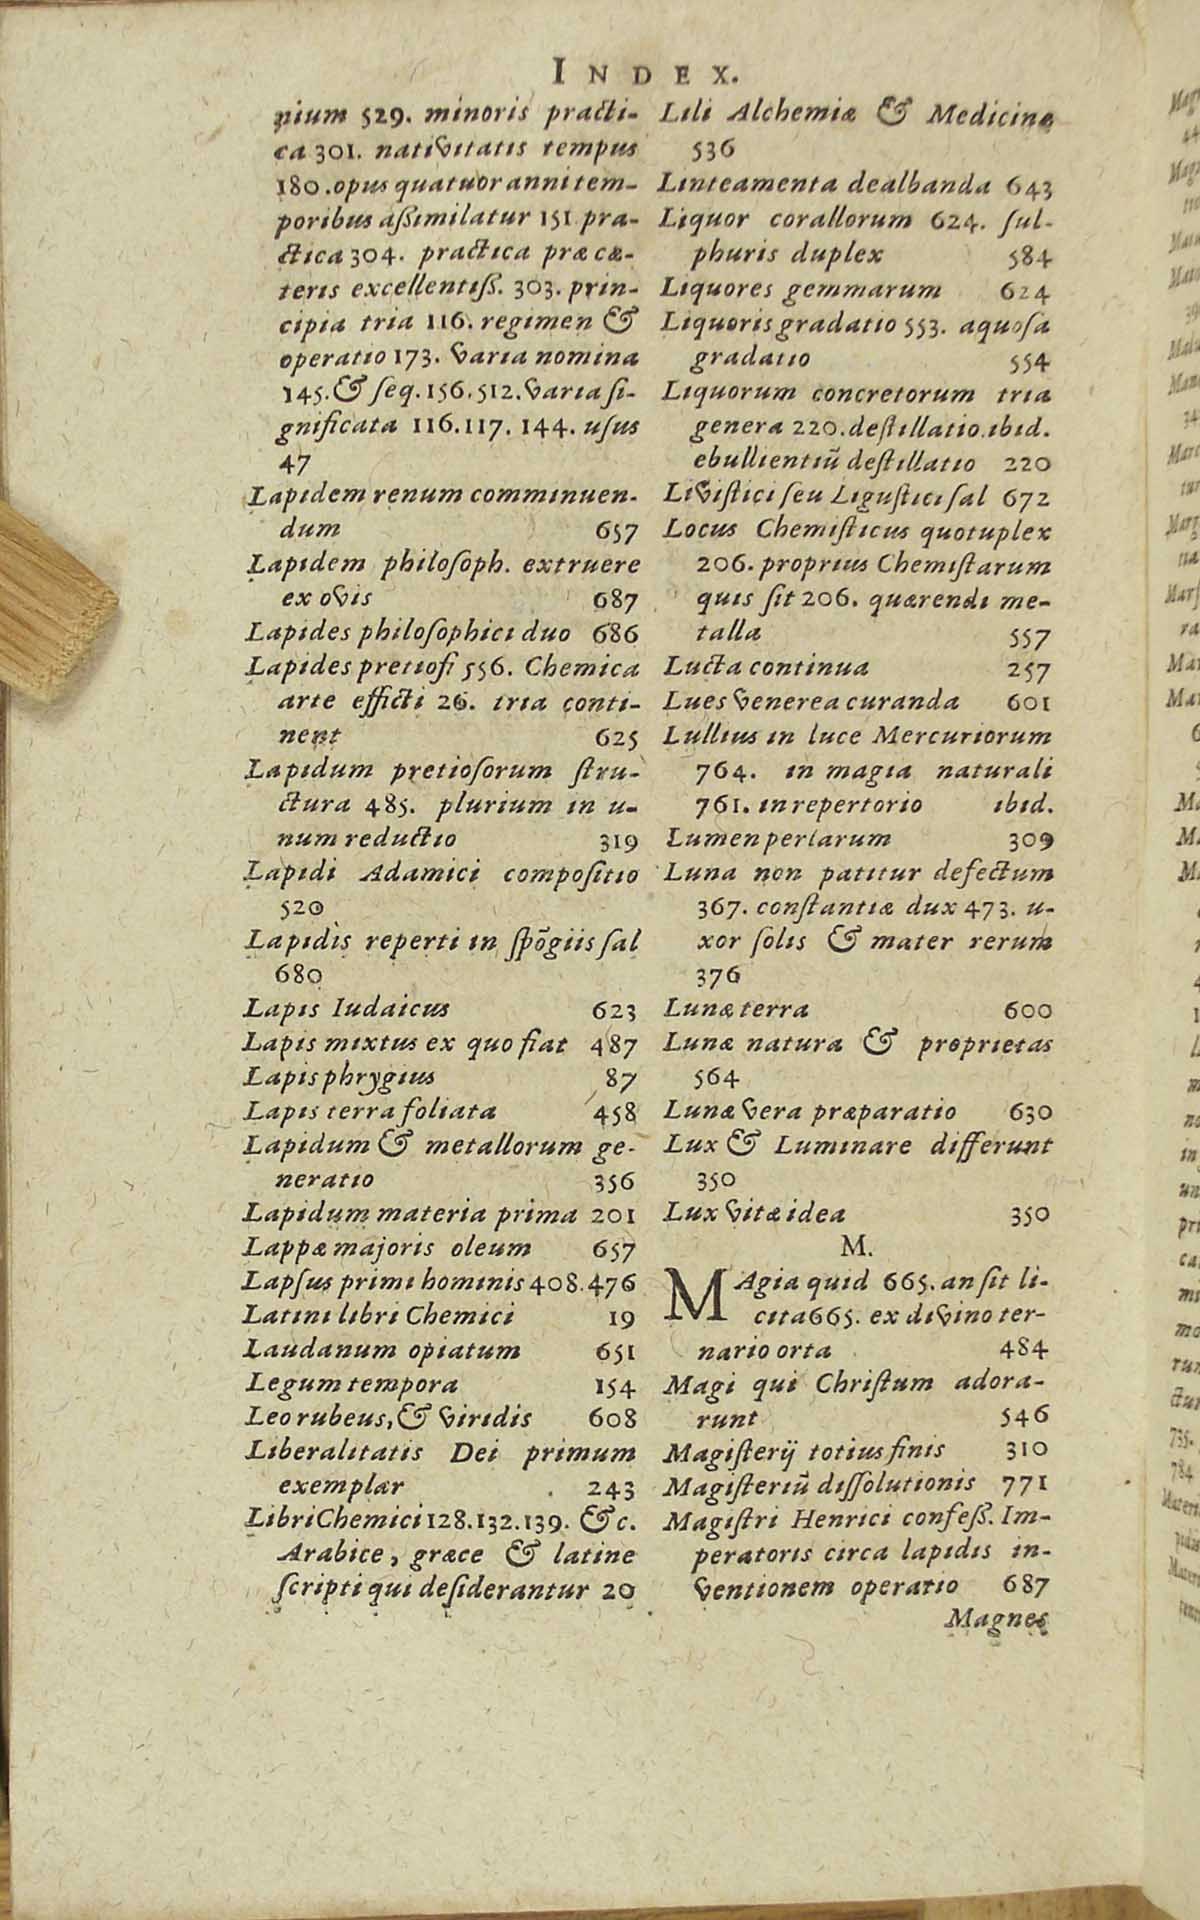 INDEX.
nium 529. minoris practi-
ca 301. nativitatis tempus
180. opus quatuor anni tem-
poribus aßimilatur 151 pra-
ctica 304. practica præ cæ-
teris excellentiß. 303. prin-
cipia tria 116. regimen &
operatio 173. varia nomina
145. & ſeq. 156. 512. varia ſi-
gnificata 116. 117. 144. uſus
47
Lapidem renum comminuen-
dum 657
Lapidem philoſoph. extruere
ex ovis 687
Lapides philoſophici duo 686
Lapides pretioſi 556. Chemica
arte efficti 26. tria conti-
nent 625
Lapidum pretioſorum ſtru-
ctura 485. plurium in u-
num reductio 319
Lapidi Adamici compoſitio
520
Lapidis reperti in ſpõgiis ſal
680
Lapis Iudaicus 623
Lapis mixtus ex quo fiat 487
Lapis phrygius 87
Lapis terra foliata 458
Lapidum & metallorum ge-
neratio 356
Lapidum materia prima 201
Lappæ majoris oleum 657
Lapſus primi hominis 408. 476
Latini libri Chemici 19
Laudanum opiatum 651
Legum tempora 154
Leo rubeus, & viridis 608
Liberalitatis Dei primum
exemplar 243
Libri Chemici 128. 132. 139. &c.
Arabice, græce & latine
ſcripti qui deſiderantur 20
Lili Alchemiæ & Medicinæ
536
Linteamenta dealbanda 643
Liquor corallorum 624. ſul-
phuris duplex 584
Liquores gemmarum 624
Liquoris gradatio 553. aquoſa
gradatio 554
Liquorum concretorum tria
genera 220. deſtillatio. ibid.
ebullientiũ deſtillatio 220
Liviſtici ſeu Liguſtici ſal 672
Locus Chemiſticus quotuplex
206. proprius Chemiſtarum
quis ſit 206. quærendi me-
talla 557
Lucta continua 257
Lues venerea curanda 601
Lullius in luce Mercuriorum
764. in magia naturali
761. in repertorio ibid.
Lumen perlarum 309
Luna non patitur defectum
367. conſtantiæ dux 473. u-
xor ſolis & mater rerum
376
Lunæ terra 600
Lunæ natura & proprietas
564
Lunæ vera præparatio 630
Lux & Luminare differunt
350
Lux vitæ idea 350
M.
MAgia quid 665. an ſit li-
cita 665. ex divino ter-
nario orta 484
Magi qui Chriſtum adora-
runt 546
Magiſterij totius finis 310
Magiſteriũ diſſolutionis 771
Magiſtri Henrici confeß. Im-
peratoris circa lapidis in-
ventionem operatio 687
Magnes